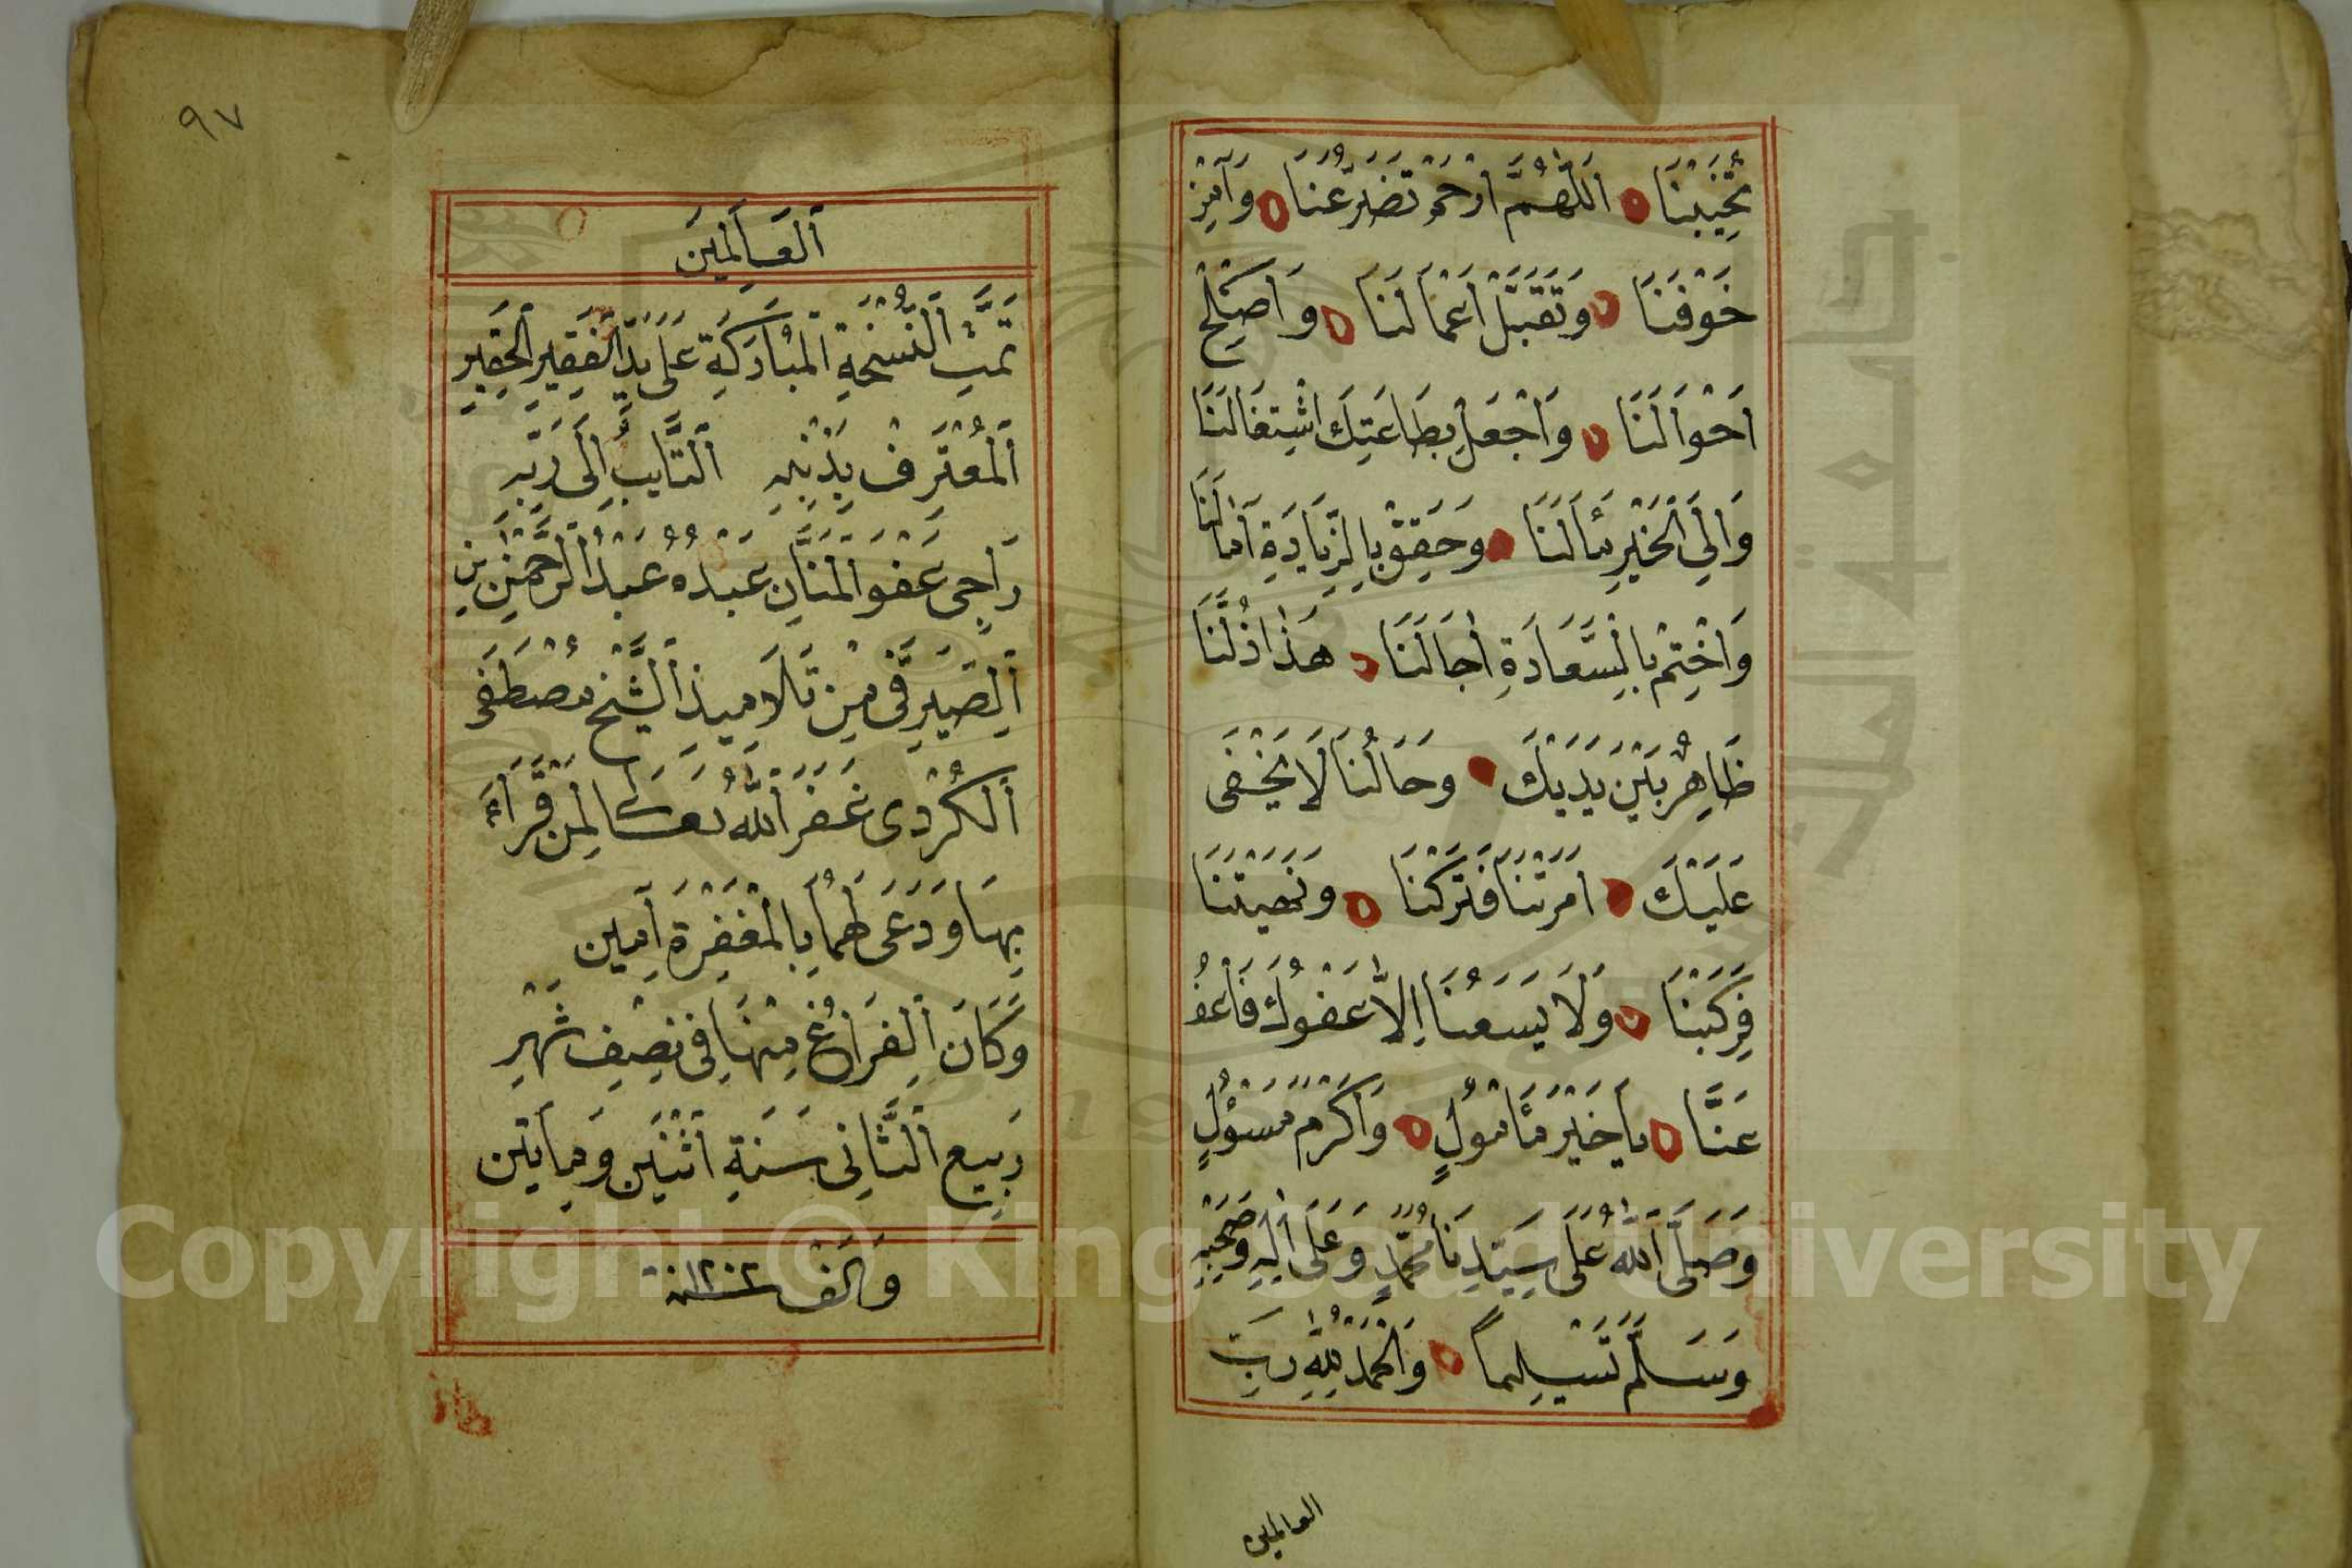 تُخَيِّبْنَا اَللّٰهُمَّ ارْحَمْ تَضَرُّعَنَا وَآمِنْ
خَوْفَنَا وَتَقَبَّلْ اَعْمَالَنَا وَاَصْلِحْ
اَحْوَالَنَا وَاجْعَلْ بِطَاعَتِكَ اشْتِغَالَنَا
وَاِلَى الْخَيْرِ مَأَلَنَا وَحَقِّقْ بِالزِّيَادَةِ آمَالَنَا
وَاخْتِمْ بِالسَّعَادَةِ اٰجَالَنَا هٰذَا ذُلُّنَا
ظَاهِرٌ بَيْنَ يَدَيْكَ وَحَالُنَا لَا يَخْفَى
عَلَيْكَ اَمَرْتَنَا فَتَرَكْنَا وَنَهَيْتَنَا
فَرَكِبْنَا وَلَا يَسَعُنَا اِلَّا عَفْوُكَ فَاعْفُ
عَنَّا يَا خَيْرَ مَأْمُولٍ وَاَكْرَمَ مَسْؤُلٍ
وَصَلَّى اللّٰهُ عَلَى سَيِّدِنَا مُحَمَّدٍ وَعَلَى اٰلِهِ وَصَحْبِهِ
وَسَلَّمَ تَسْلِيمًا وَالْحَمْدُ لِلّٰهِ رَبِّ
العالمين
٩٧
اَلْعَالَمِينَ
تَمَّتِ النُّسْخَةِ الْمُبَارَكَةِ عَلَى يَدِ الْفَقِيرِ الْحَقِيرِ
اَلْمُعْتَرِفْ بِذَنْبِهِ اَلتَّايِبِ اِلَى رَبِّهِ
رَاجِى عَفْوَ الْمَنَّانِ عَبْدُهُ عَبْدُ الرَّحْمٰنِ بْنِ
اَلصَّيْرَفِى مِنْ تَلَامِيذِ الشَّيْخْ مُصْطَفَى
اَلْكُرْدِى غَفَرَ اللّٰهُ تَعَالَى لِمَنْ قَرَأَ
بِهَا وَدَعَى لَهُمَا بِالْمَغْفِرَةِ آمِين
وَكَانَ الْفَرَاغُ مِنْهَا فِى نِصْفِ شَهْرِ
رَبِيع اَلثَّانِى سَنَةِ اَثْنَيْنِ وَمِايَتَين
وَاَلْف سنة ١٢٠٢
Copyright © King Saud University